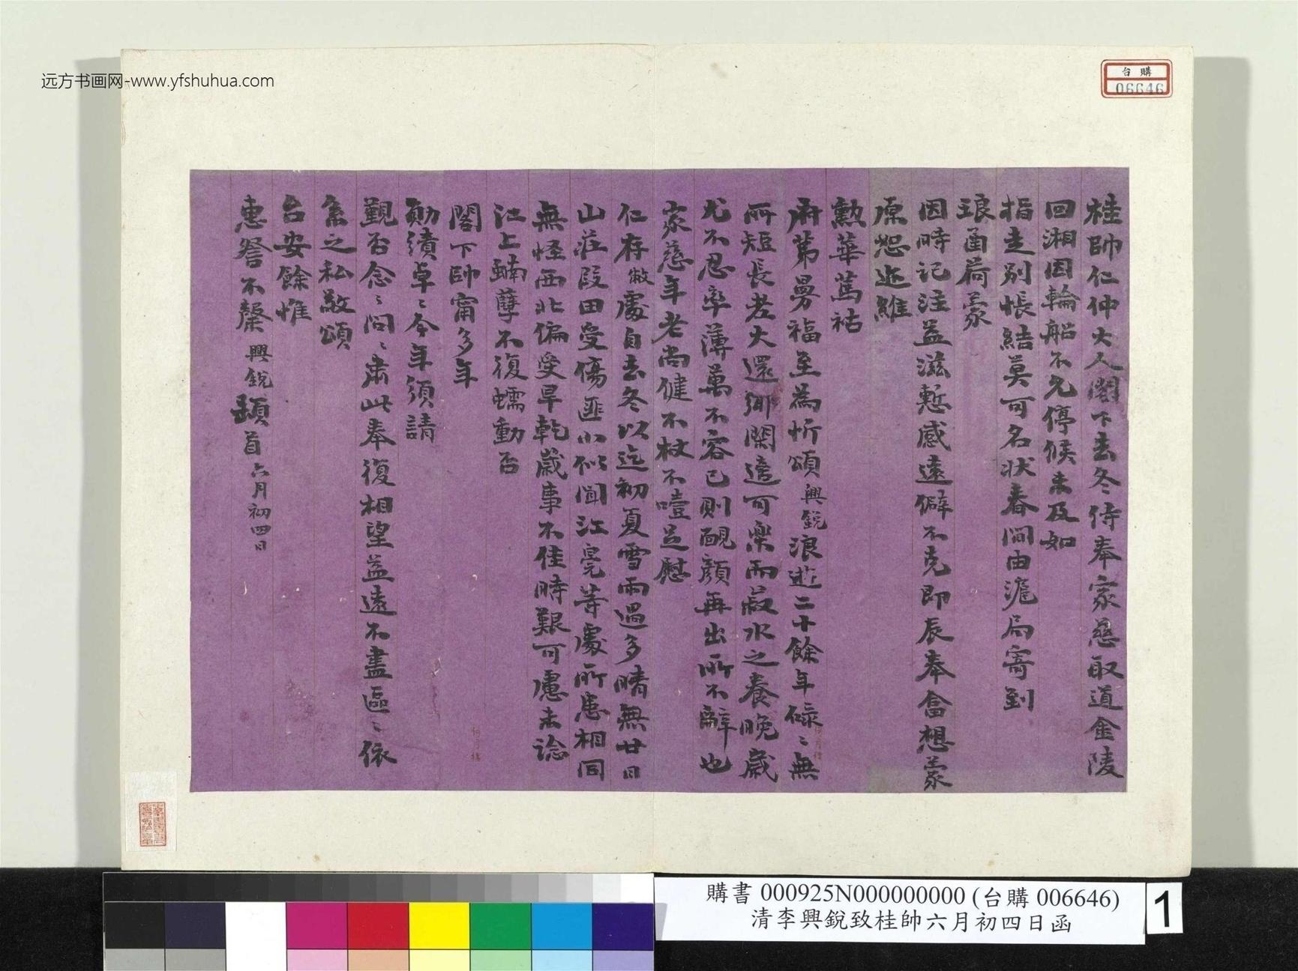 远方书画网-www.yfshuhua.com
台購
06646
桂帥仁仲大人閣下去冬侍奉家慈取道金陵
回湘因輪船不允停候未及如
指走別悵結莫可名狀春間由滬局寄到
琅函荷蒙
因時記注益滋慙感遠僻不克即辰奉畣想蒙
原恕近維
勲華篤祜
府第曼福至為忻頌興銳浪遊二十餘年碌〻無
所短長老大還鄉閑適可樂而菽水之養晚歲
尤不忍率薄萬不容已則靦顏再出所不辭也
家慈年老尚健不杖不噎足慰
仁存敝處自去冬以迄初夏雪雨過多晴無廿日
山莊段田受傷匪小似聞江亳等處所患相同
無怪西北偏受旱乾歲事不佳時艱可慮未諗
江上蝻孽不復蠕動否
閣下帥甯多年
勛績卓〻今年須請
覲否念〻問〻肅此奉復相望益遠不盡區〻依
系之私敬頌
台安餘惟
惠詧不罄 興銳 頓首 六月初四日
購書 000925N000000000 (台購 006646)
清李興銳致桂帥六月初四日函
1